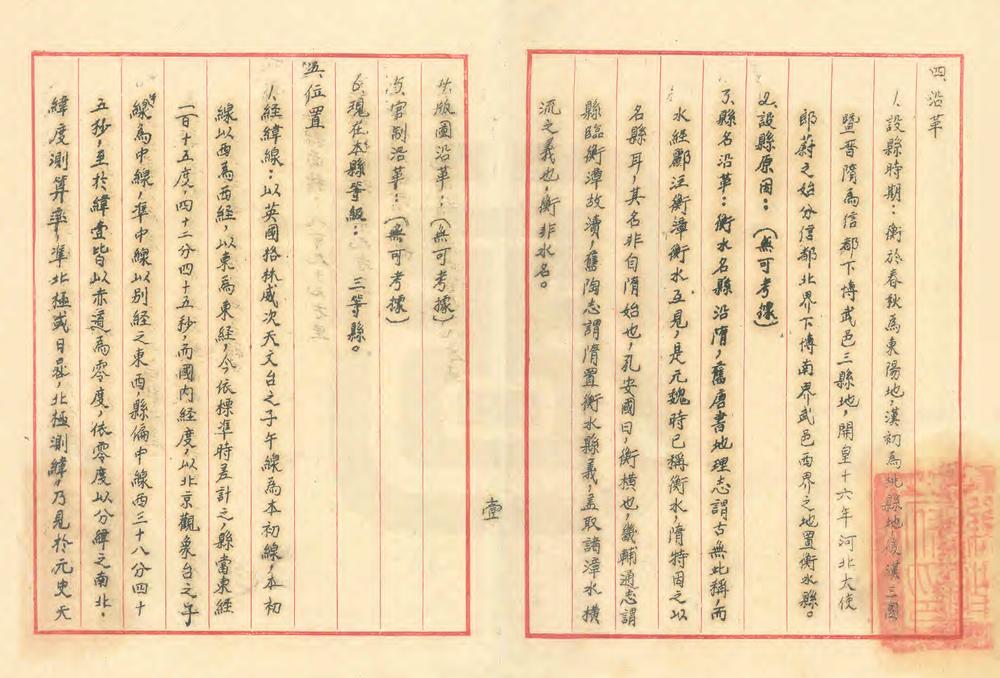 四、沿革
1、設縣時期：衡於春秋為東陽地，漢初為桃縣地，後漢三國
暨晉隋為信都下博武邑三縣地，開皇十六年河北大使
郎蔚之始分信都北界下博南界武邑西界之地置衡水縣。
2、設縣原因：（無可考據）
3、縣名沿革：衡水名縣沿隋，舊唐書地理志謂古無此稱，而
水經酈注衡漳衡水互見，是元魏時已稱衡水，隋特因之以
名縣耳，其名非自隋始也，孔安國曰，衡橫也，畿輔通志謂
縣臨衡漳故瀆，舊陶志謂隋置衡水縣義，盖取諸漳水橫
流之義也，衡非水名。
壹
4、版圖沿革：（無可考據）
5、官制沿革：（無可考據）
6、現在本縣等級：三等縣。
五、位置
1、經緯線：以英國格林威次天文台之子午線為本初線，本初
線以西為西經，以東為東經，今依標準時差計之，縣當東經
一百十五度，四十二分四十五秒，而國內經度，以北京觀象台之子
午線為中線，準中線以別經之東西，縣偏中線西三十八分四十
五秒，至於緯壹皆以赤道為零度，依零度以分緯之南北，
緯度測算率，準北極或日晷，北極測緯，乃見於元史天